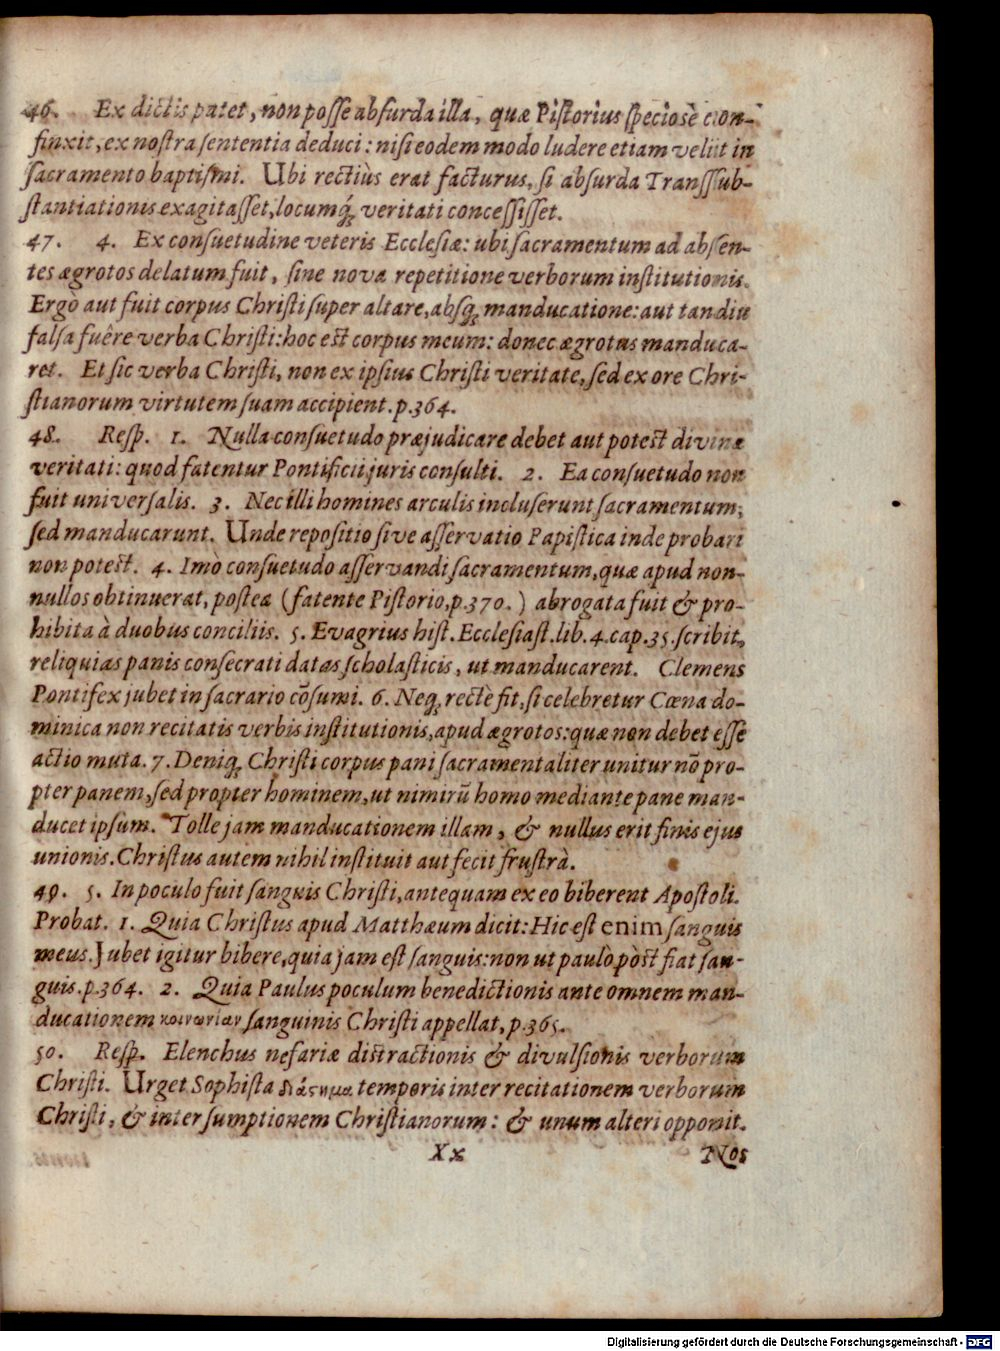 46. Ex dictis patet, non posse absurda illa, quæ Pistorius speciosè con-
finxit, ex nostra sententia deduci: nisi eodem modo ludere etiam velut in
sacramento baptismi. Ubi rectiùs erat facturus, si absurda Transsub-
stantiationis exagitasset, locumq́; veritati concessisset.
47. 4. Ex consuetudine veteris Ecclesiæ: ubi sacramentum ad absen-
tes ægrotos delatum fuit, sine nova repetitione verborum institutionis.
Ergò aut fuit corpus Christi super altare, absq; manducatione: aut tandiu
falsa fuêre verba Christi: hoc est corpus meum: donec ægrotus manduca-
ret. Et sic verba Christi, non ex ipsius Christi veritate, sed ex ore Chri-
stianorum virtutem suam accipient. p. 364.
48. Resp. 1. Nulla consuetudo præjudicare debet aut potest divinæ
veritati: quod fatentur Pontificii juris consulti. 2. Ea consuetudo non
fuit universalis. 3. Nec illi homines arculis incluserunt sacramentum;
sed manducarunt. Unde repositio sive asservatio Papistica inde probari
non potest. 4. Imò consuetudo asservandi sacramentum, quæ apud non-
nullos obtinuerat, postea (fatente Pistorio, p. 370.) abrogata fuit & pro-
hibita à duobus conciliis. 5. Evagrius hist. Ecclesiast. lib. 4. cap. 35. scribit,
reliquias panis consecrati datas scholasticis, ut manducarent. Clemens
Pontifex jubet in sacrario cōsumi. 6. Neq; rectè fit, si celebretur Cœna do-
minica non recitatis verbis institutionis, apud ægrotos: quæ non debet esse
actio muta. 7. Deniq; Christi corpus pani sacramentaliter unitur nō pro-
pter panem, sed propter hominem, ut nimirū homo mediante pane man-
ducet ipsum. Tolle jam manducationem illam, & nullus erit finis ejus
unionis. Christus autem nihil instituit aut fecit frustrà.
49. 5. In poculo fuit sanguis Christi, antequam ex eo biberent Apostoli.
Probat. 1. Quia Christus apud Matthæum dicit: Hic est enim sanguis
meus. Jubet igitur bibere, quia jam est sanguis: non ut paulò pòst fiat san-
guis. p. 364. 2. Quia Paulus poculum benedictionis ante omnem man-
ducationem κοινωνίαν sanguinis Christi appellat, p. 365.
50. Resp. Elenchus nefariæ distractionis & divulsionis verborum
Christi. Urget Sophista διάστημα temporis inter recitationem verborum
Christi, & inter sumptionem Christianorum: & unum alteri opponit.
Xx
Nos
Digitalisierung gefördert durch die Deutsche Forschungsgemeinschaft - DFG